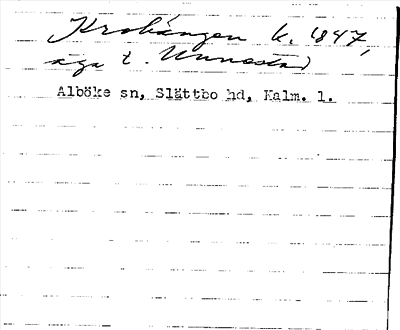 Krobängen k. 847,
äga t. Unnestad
Alböke sn, Slättbo hd, Kalm. l.